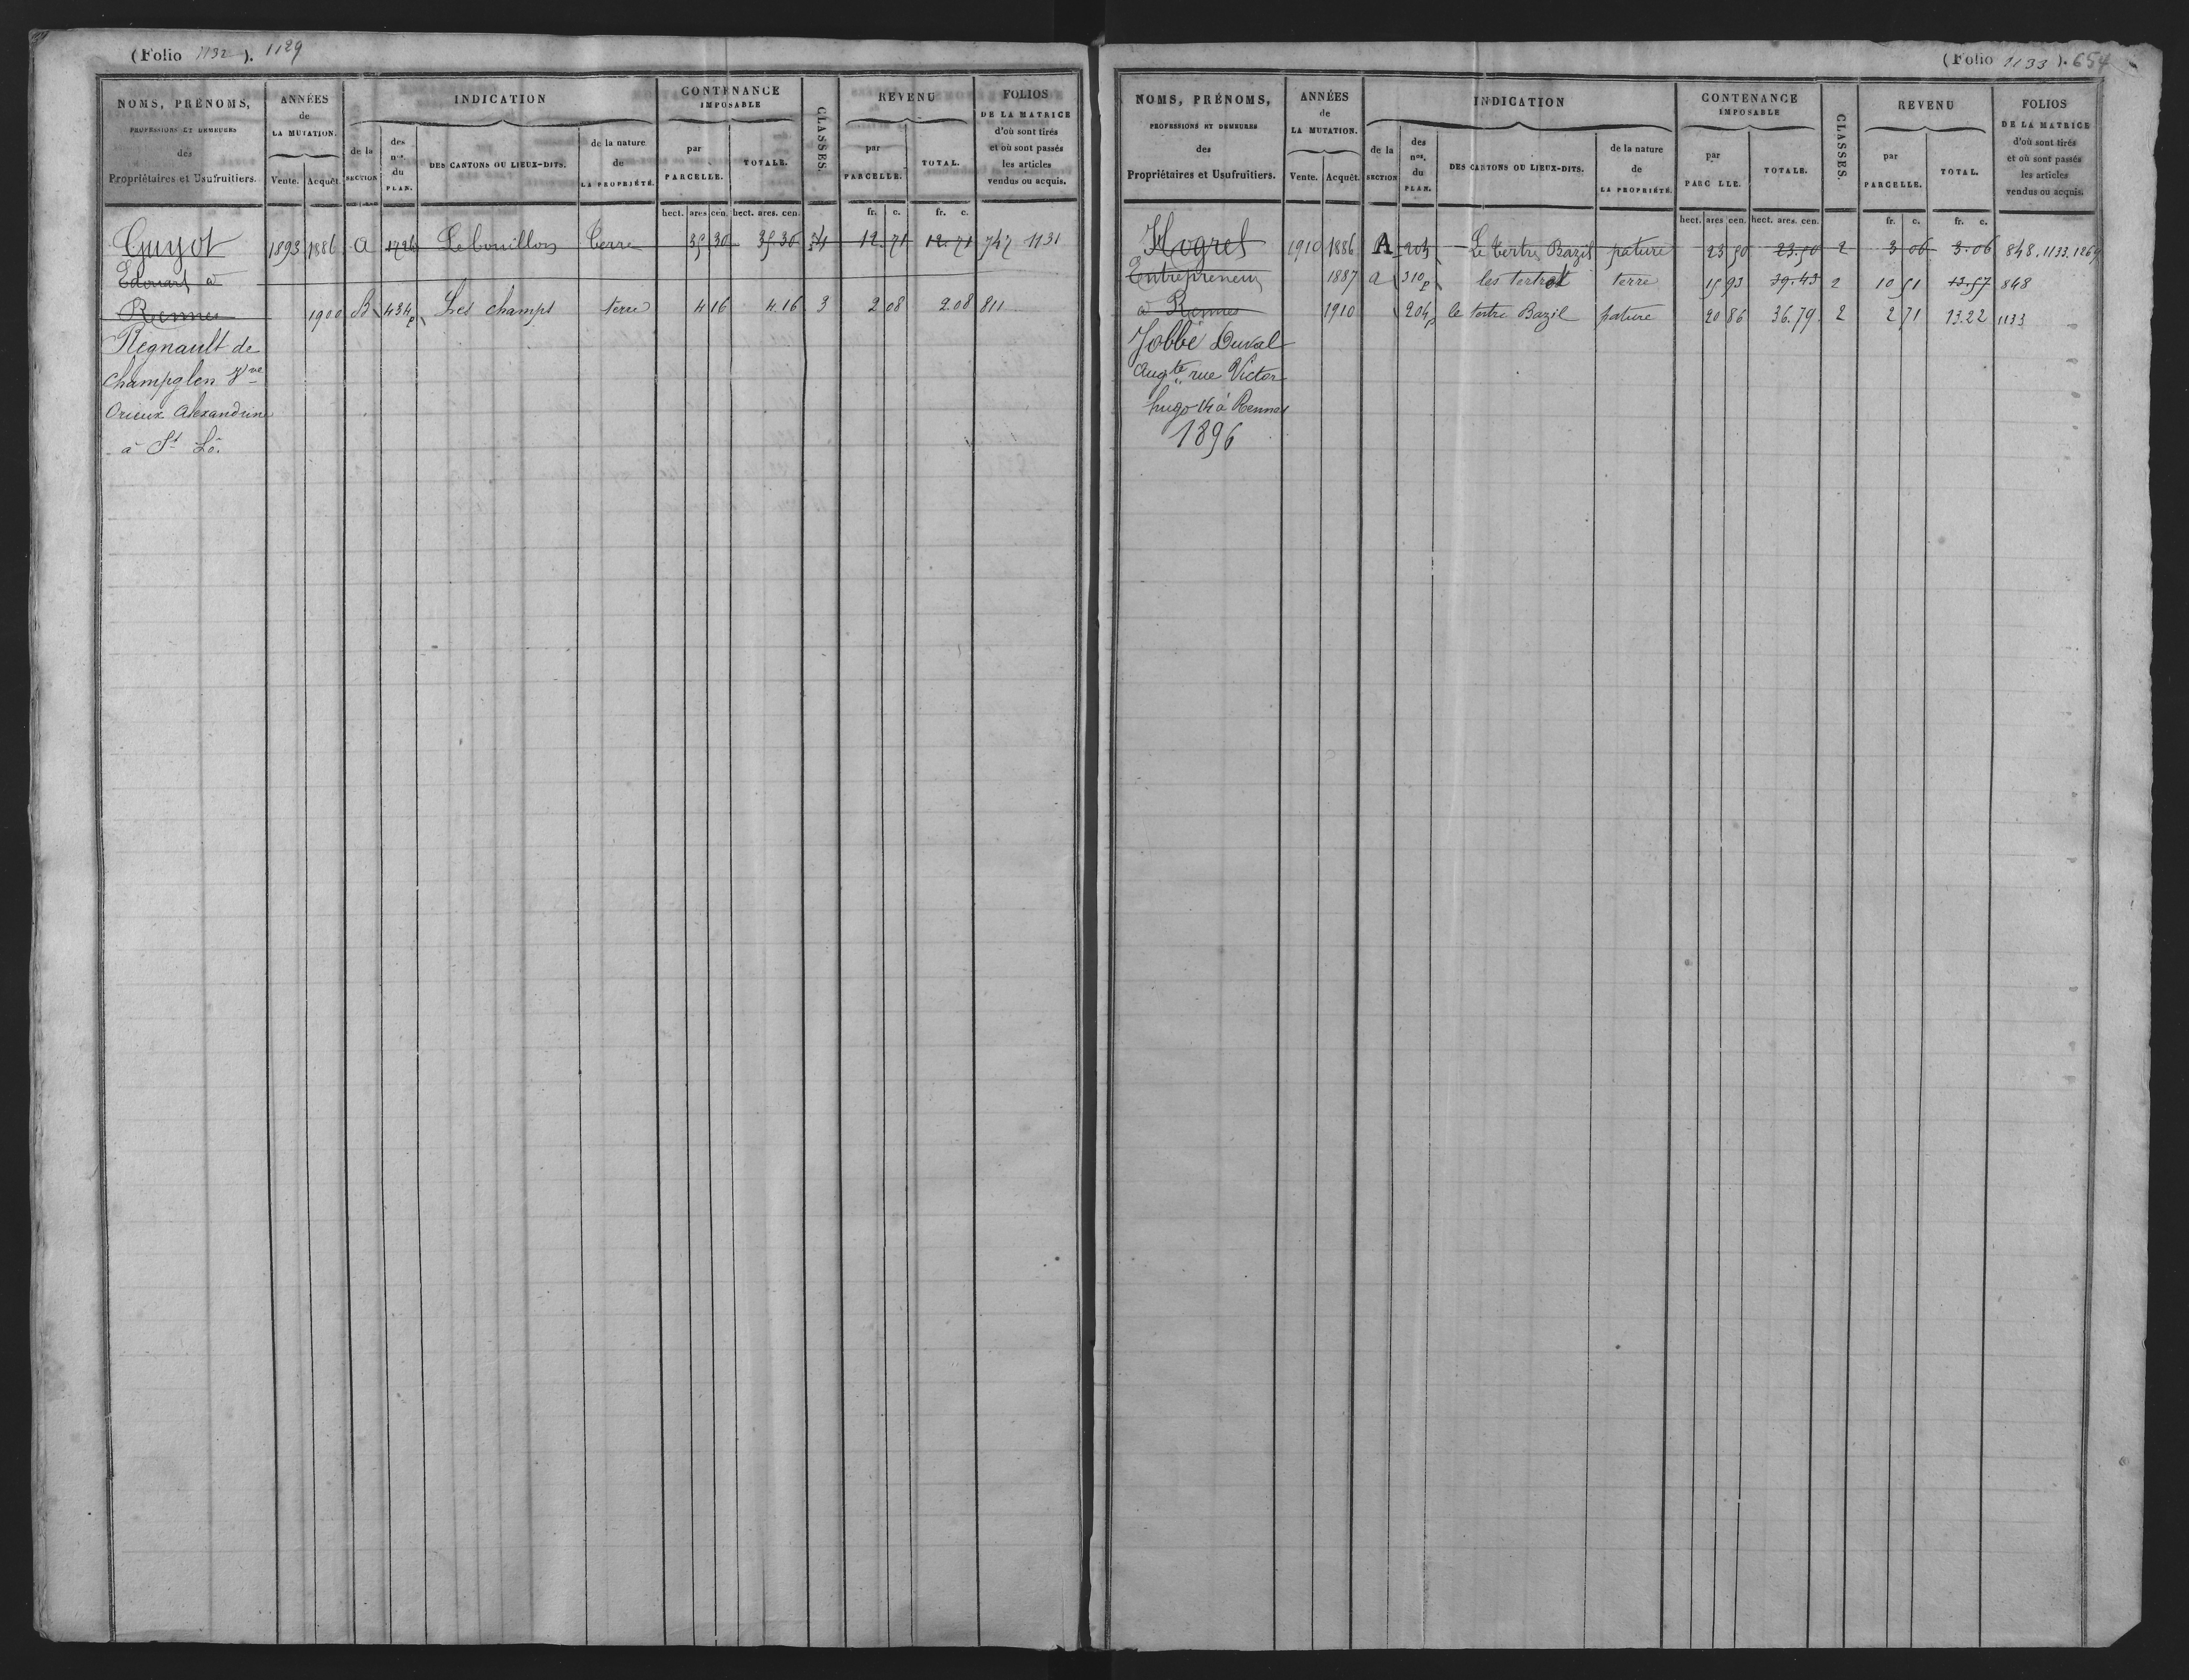 (Folio 1132). 1129
NOMS, PRÉNOMS,
PROFESSIONS ET DEMEURES
des
Propriétaires et Usufruitiers.
ANNÉES
de
LA MUTATION.
Vente. Acquêt.
INDICATION
de la
SECTION
des
nos.
du
PLAN.
DES CANTONS OU LIEUX-DITS.
de la nature
de
LA PROPRIÉTÉ.
CONTENANCE
IMPOSABLE
par
PARCELLE.
TOTALE.
CLASSES.
REVENU
par
PARCELLE.
TOTAL.
FOLIOS
DE LA MATRICE
d'où sont tirés
et où sont passés
les articles
vendus ou acquis.
hect. ares cen. hect. ares. cen. fr. c. fr. c.
Guyot 1893 1886 a 1726 Le bouillon terre 35 30 35.30 12 71 12.71 747 1131
Edouart à
Rennes 1900 B 434p Les champs terre 4 16 4.16 3 2 08 2.08 811
Regnault de
Champglen Vve
Orieux Alexandrine
à St Lô.
(Folio 1133). 654
NOMS, PRÉNOMS,
PROFESSIONS ET DEMEURES
des
Propriétaires et Usufruitiers.
ANNÉES
de
LA MUTATION.
Vente. Acquêt.
INDICATION
de la
SECTION
des
nos.
du
PLAN.
DES CANTONS OU LIEUX-DITS.
de la nature
de
LA PROPRIÉTÉ.
CONTENANCE
IMPOSABLE
par
PARC LLE.
TOTALE.
CLASSES.
REVENU
par
PARCELLE.
TOTAL.
FOLIOS
DE LA MATRICE
d'où sont tirés
et où sont passés
les articles
vendus ou acquis.
hect. ares cen. hect. ares. cen. fr. c. fr. c.
Hogrel 1910 1886 A 204 Le tertre Bazil pature 23 50 23.50 2 3 06 3.06 848.1133.1269
Entrepreneur 1887 a 310p les tertres terre 15 93 39.43 2 10 51 13.57 848
à Rennes 1910 204p le tertre Bazil pature 20 86 36.79 2 2 71 13.22 1133
Jobbé Duval
Augte rue Victor
hugo 14 à Rennes
1896